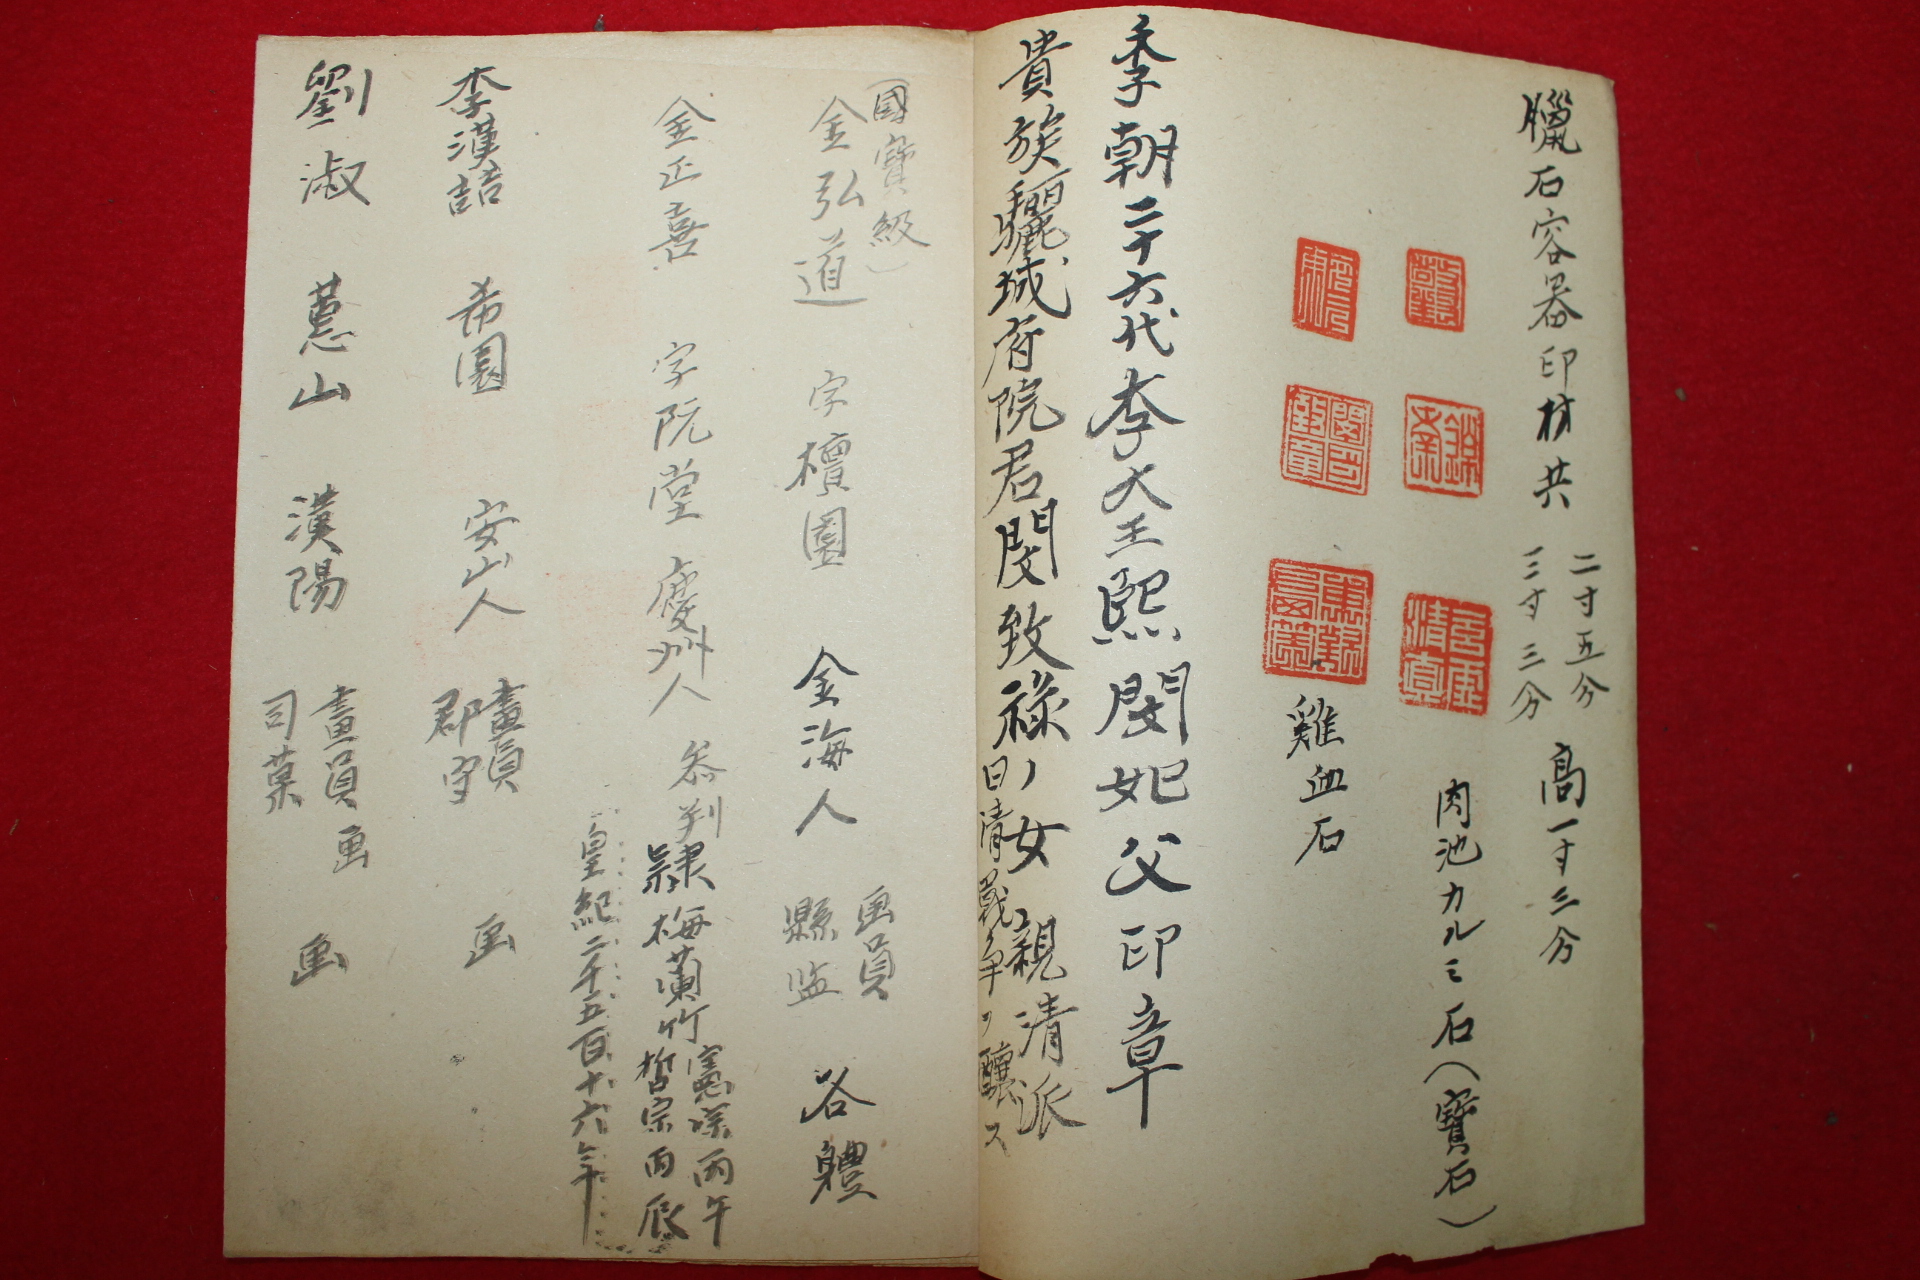 臘石容器印材共
二寸五分
三寸三分
高一寸三分
肉池カルミ石(寶石)
雞血石
李朝二十六代李大王熙閔妃父印章
貴族驪城府院君閔致祿ノ女親清派
日清戰争ヲ釀ス
(國寶級)
金弘道 字檀園 金海人 画員 縣監 各軆
金正喜 字阮堂 慶州人 叅判 隷梅蘭竹 憲宗丙午 哲宗丙辰
皇紀二千五百十六年
李漢喆 希園 安山人 畵員 郡守 画
劉淑 蕙山 漢陽 畫員 司菓 画 画